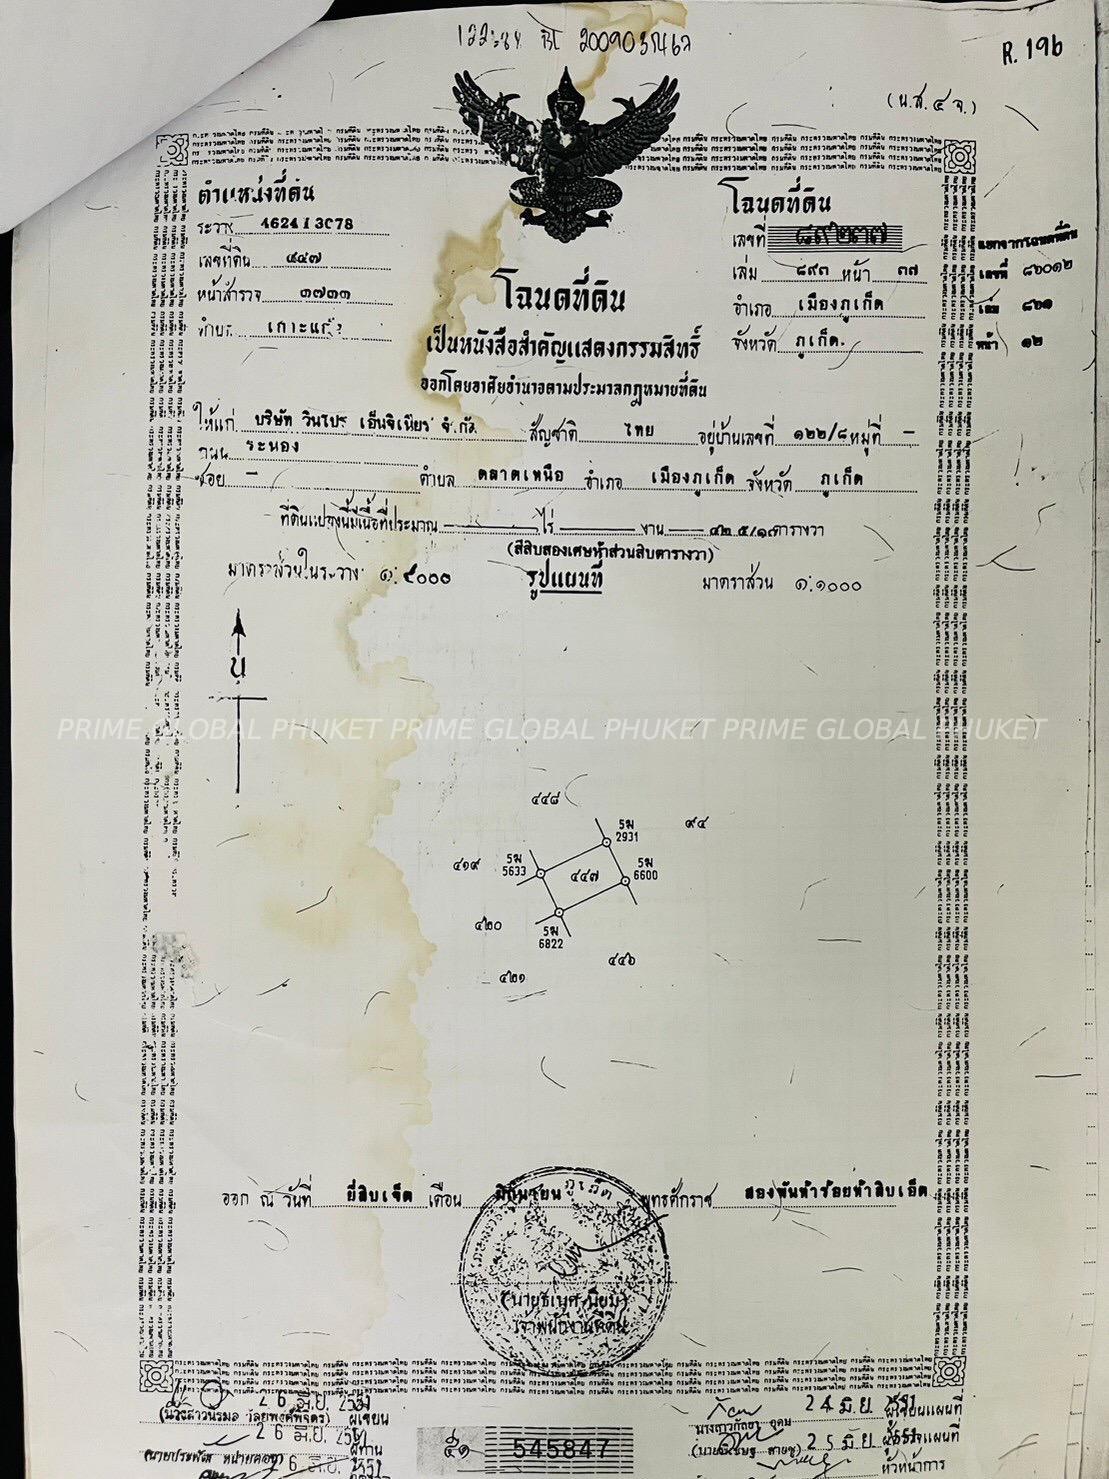 R. 196
(น.ส.๔ จ.)
ตำแหน่งที่ดิน
ระวาง 4624 I 3078
เลขที่ดิน ๔๔๗
หน้าสำรวจ ๓๗๓๓
ตำบล เกาะแก้ว
โฉนดที่ดิน
เลขที่ ๘๙๒๓๗
เล่ม ๘๙๓ หน้า ๓๗
อำเภอ เมืองภูเก็ต
จังหวัด ภูเก็ต.
แยกจากโฉนดที่ดิน
เลขที่ ๘๒๐๑๒
เล่ม ๘๒๑
หน้า ๑๒
โฉนดที่ดิน
เป็นหนังสือสำคัญแสดงกรรมสิทธิ์
ออกโดยอาศัยอำนาจตามประมวลกฎหมายที่ดิน
ให้แก่ บริษัท วินโปร เอ็นจิเนียร์ จำกัด สัญชาติ ไทย อยู่บ้านเลขที่ ๑๒๒/๘ หมู่ที่ -
ถนน ระนอง
ซอย - ตำบล ตลาดเหนือ อำเภอ เมืองภูเก็ต จังหวัด ภูเก็ต
ที่ดินแปลงนี้มีเนื้อที่ประมาณ ไร่ งาน ๔๒ ๕/๑๐ ตารางวา
(สี่สิบสองเศษห้าส่วนสิบตารางวา)
มาตราส่วนในระวาง ๑:๔๐๐๐ รูปแผนที่ มาตราส่วน ๑:๑๐๐๐
น
PRIME GLOBAL PHUKET PRIME GLOBAL PHUKET PRIME GLOBAL PHUKET
๔๔๘
๙๔
2931
๔๑๙
5633
๔๔๗
6600
๔๒๐
6822
๔๔๖
๔๒๑
ออก ณ วันที่ ยี่สิบเจ็ด เดือน มิถุนายน พุทธศักราช สองพันห้าร้อยห้าสิบเอ็ด
เจ้าพนักงานที่ดิน
26 มิ.ย. 2551 ผู้เขียน
24 มิ.ย. 2551 ผู้เขียนแผนที่
26 มิ.ย. 2551 ผู้ทาน
25 มิ.ย. 2551 ผู้ตรวจแผนที่
๔๑ 545847
หัวหน้าการ